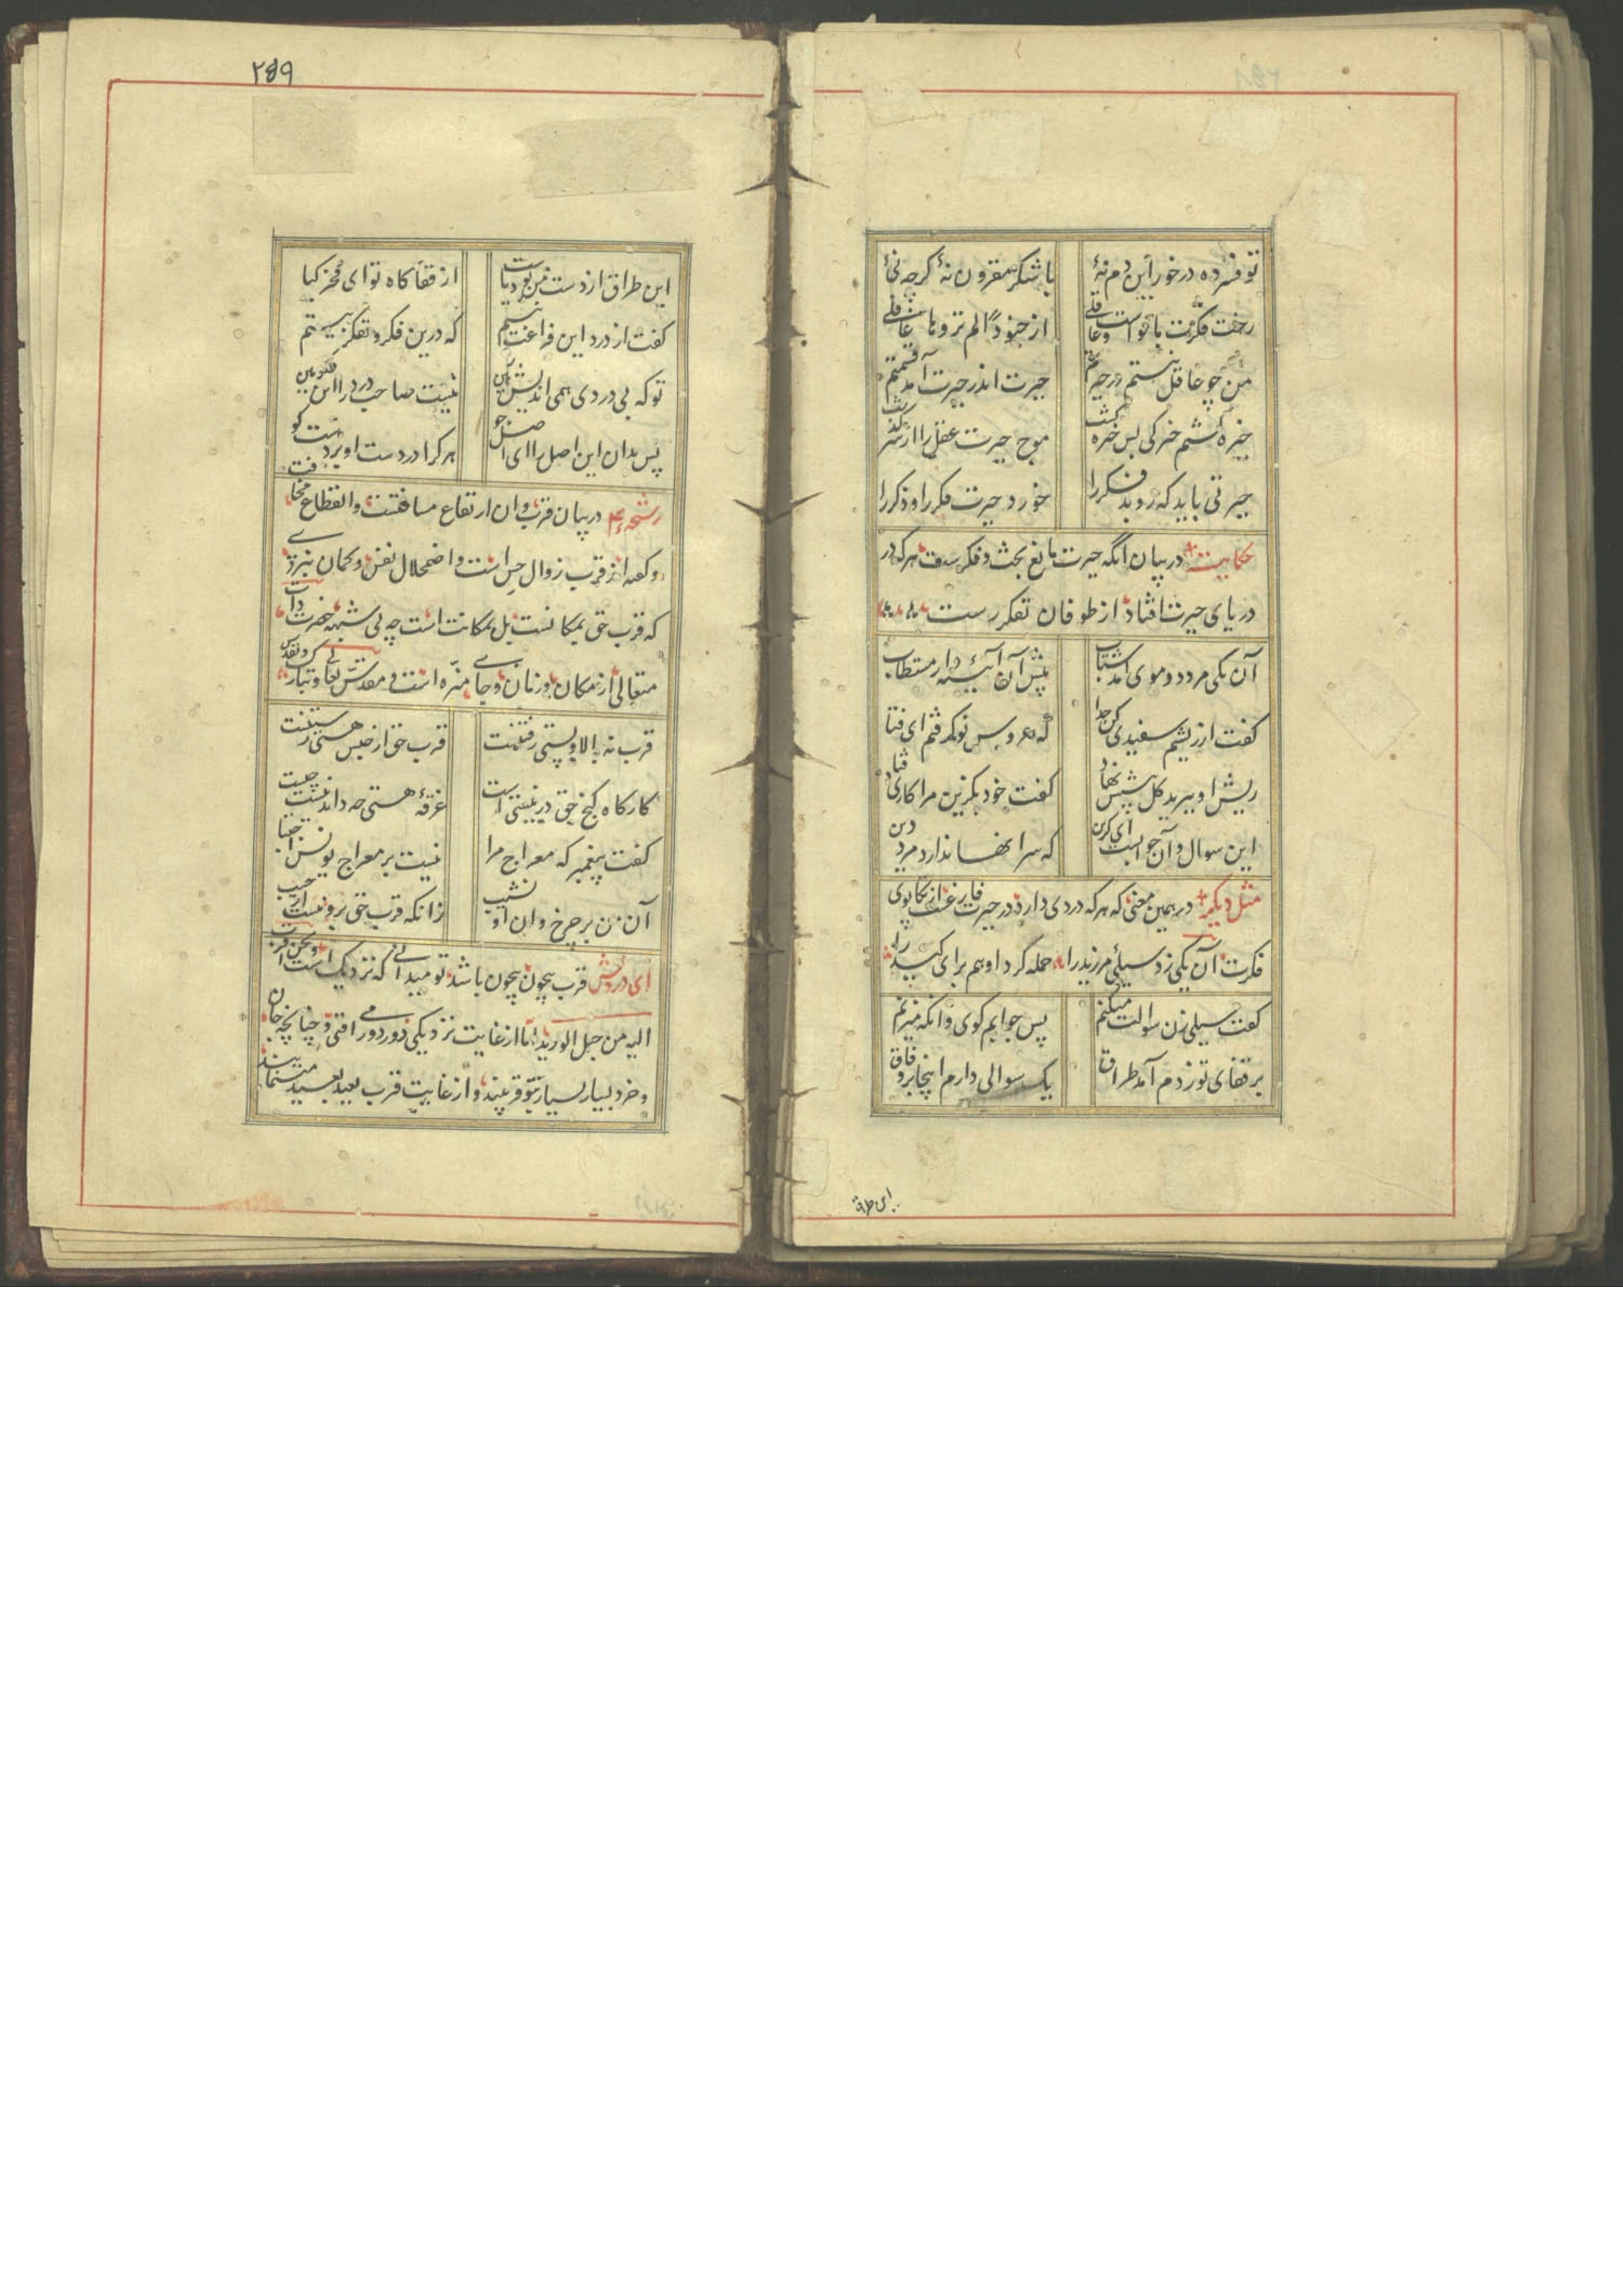 تو فسرده درخور این دم نهٔ با شکر مقرون نهٔ گرچه نیٔ
رخت فکرت با تو است و عاقلی از جنوداً لم تروها غافلی
من چو عاقل نیستم در حیرتم حیرت اندر حیرت آمد قسمتم
خیره گشتم خیرگی بس خیره گشت موج حیرت عقل را از سر گذشت
حیرتی باید که روبد فکر را خورد حیرت فکر را و ذکر را
حکایت در بیان آنکه حیرت مانع بحث و فکرست هرکه در
دریای حیرت افتاد از طوفان تفکر رست
آن یکی مرد دو موی آمد شتاب پیش آن آیینه دار مستطاب
گفت از ریشم سفیدی کن جدا که عروس نو گرفتم ای فتا
ریش او ببرید کل پیشش نهاد گفت خود بگزین مرا کاری فتاد
این سوال و آن جوابست ای گزین که سر اینها ندارد مرد دین
مثل دیگر در همین معنی که هرکه دردی دارد در حیرت فارغست از تکاپوی
فکرت آن یکی زد سیلئ مر زید را حمله کرد او هم برای کید را
گفت سیلی زن سوالت میکنم پس جوابم گوی وانگه میزنم
بر قفای تو زدم آمد طراق یک سوالی دارم اینجا بر وفاق
این طراق
۲۵۹
این طراق از دست من بودست یا از قفا گاه تو ای فخر کیا
گفت از درد این فراغت نیستم که درین فکر و تفکر بیستم
تو که بی دردی همی اندیش این نیست صاحب درد را این فکر هین
پس بدان این اصل را ای اصل جو هرکرا دردست او بردست بو
رشحه در بیان قرب و ان ارتفاع مسافتست و انقطاع مخافت
و گفته اند قرب زوال حس است و اضمحلال نفس و گمان نبری
که قرب حق بمکانست بل بمکانت است چه بی شبهه حضرت ذات
متعالی از مکان و زمان و جای منزه است و مقدس تعالی و تبارک و تقدس
قرب نه بالا و پستی رفتنست قرب حق از حبس هستی رستنست
کارگاه گنج حق در نیستی است غرقهٔ هستی چه داند نیست چیست
گفت پیغمبر که معراج مرا نیست بر معراج یونس اجتبا
آن من بر چرخ و ان او نشیب زانکه قرب حق برونست از حسیب
ای درویش قرب بیچون بیچون باشد تو میدانی که نزدیک است و نحن اقرب
الیه من حبل الورید اما از غایت نزدیکی دور دور می افتی و چنانچه جان
و خرد بسیار بسیار بتو قریبند و از غایت قرب بعید بعید مینمایند